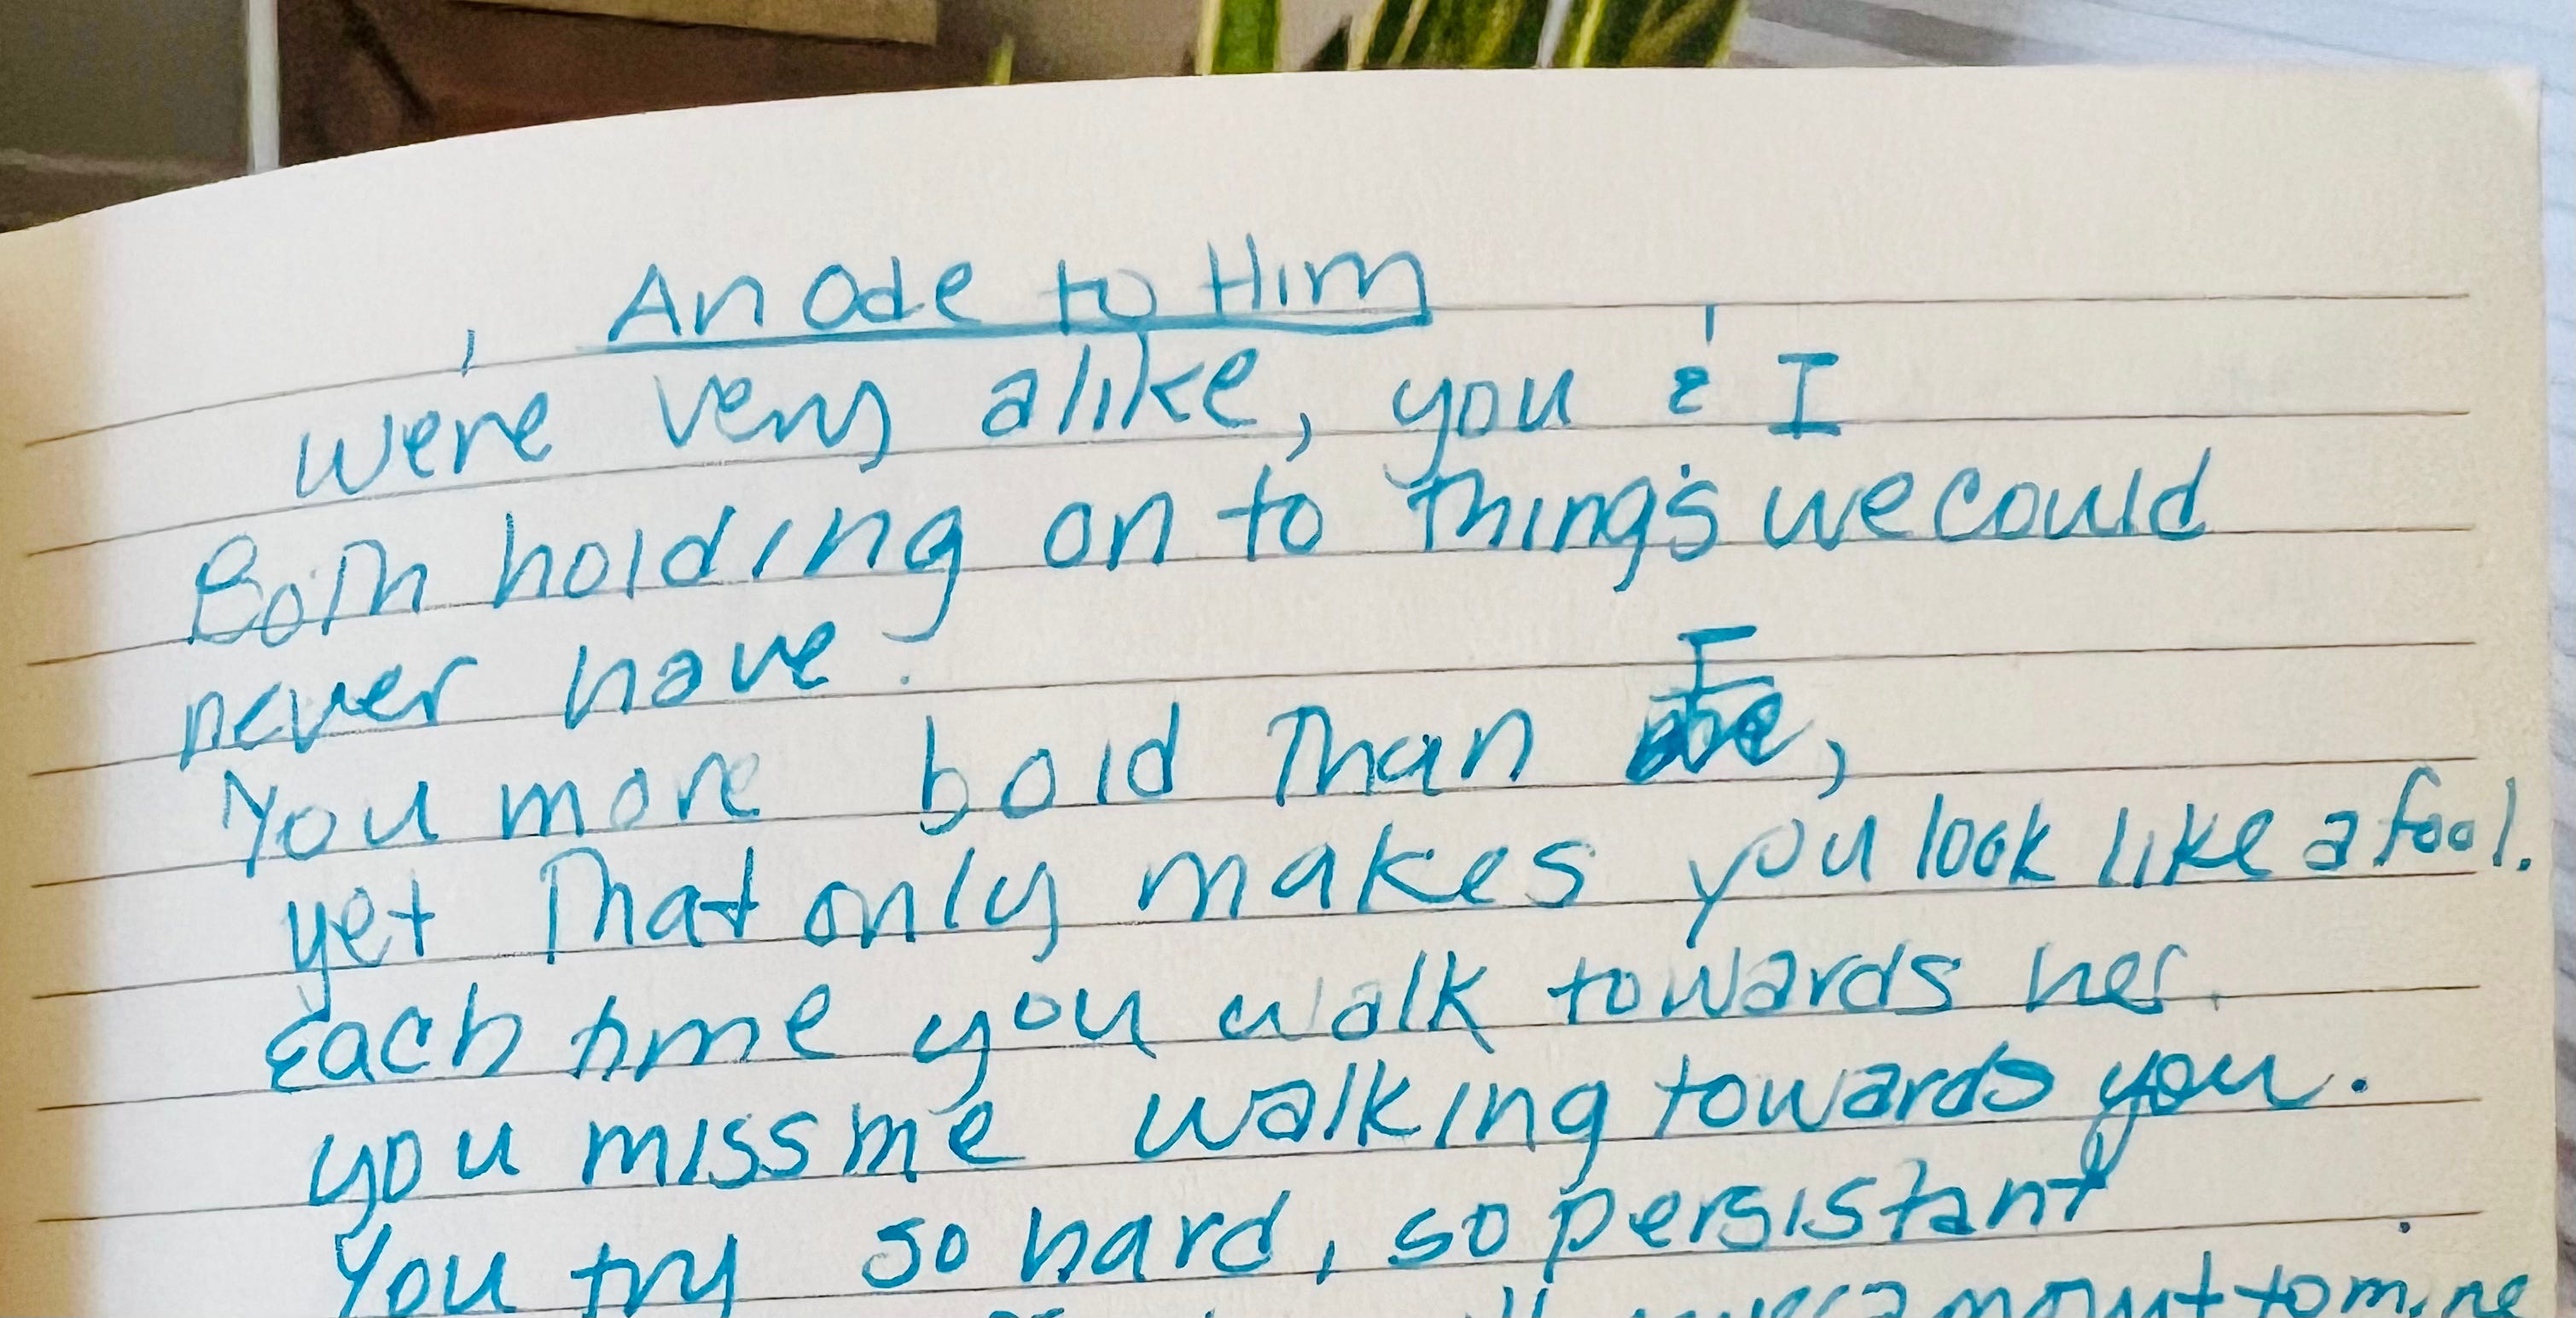 An Ode to Him
we're very alike, you & I
Both holding on to things we could
never have.
You more bold than I,
yet That only makes you look like a fool.
Each time you walk towards her,
you miss me walking towards you.
You try so hard, so persistant
amount to mine